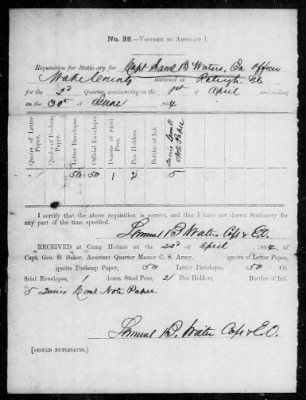 No. 38.—VOUCHER TO ABSTRACT I.
Requisition for Stationery for Capt Saml B Waters, En officer
Wake County stationed at Raleigh NC
for the 2d Quarter, commencing on the 1st of April and ending
on the 30th of June 4
Quires of Letter Paper.
Quires of Foolscap Paper.
Letter Envelopes.
Official Envelopes.
Dozens of Steel Pens.
Pen Holders.
Bottles of Ink.
Quires Coml Note Paper
50 50 1 2 5
I certify that the above requisition is correct, and that I have not drawn Stationery for
any part of the time specified.
Samuel B Waters Capt & E.O.
RECEIVED at Camp Holmes on the 22d of April 1864 of
Capt. Geo. B. Baker, Assistant Quarter Master C. S. Army, quires of Letter Paper,
quires Foolscap Paper, 50 Letter Envelopes, 50 Of-
ficial Envelopes, 1 dozen Steel Pens, 2 Pen Holders, Bottles of Ink.
5 Quires Coml Note Paper
Samuel B. Waters Capt & E.O.
[SIGNED DUPLICATES.]